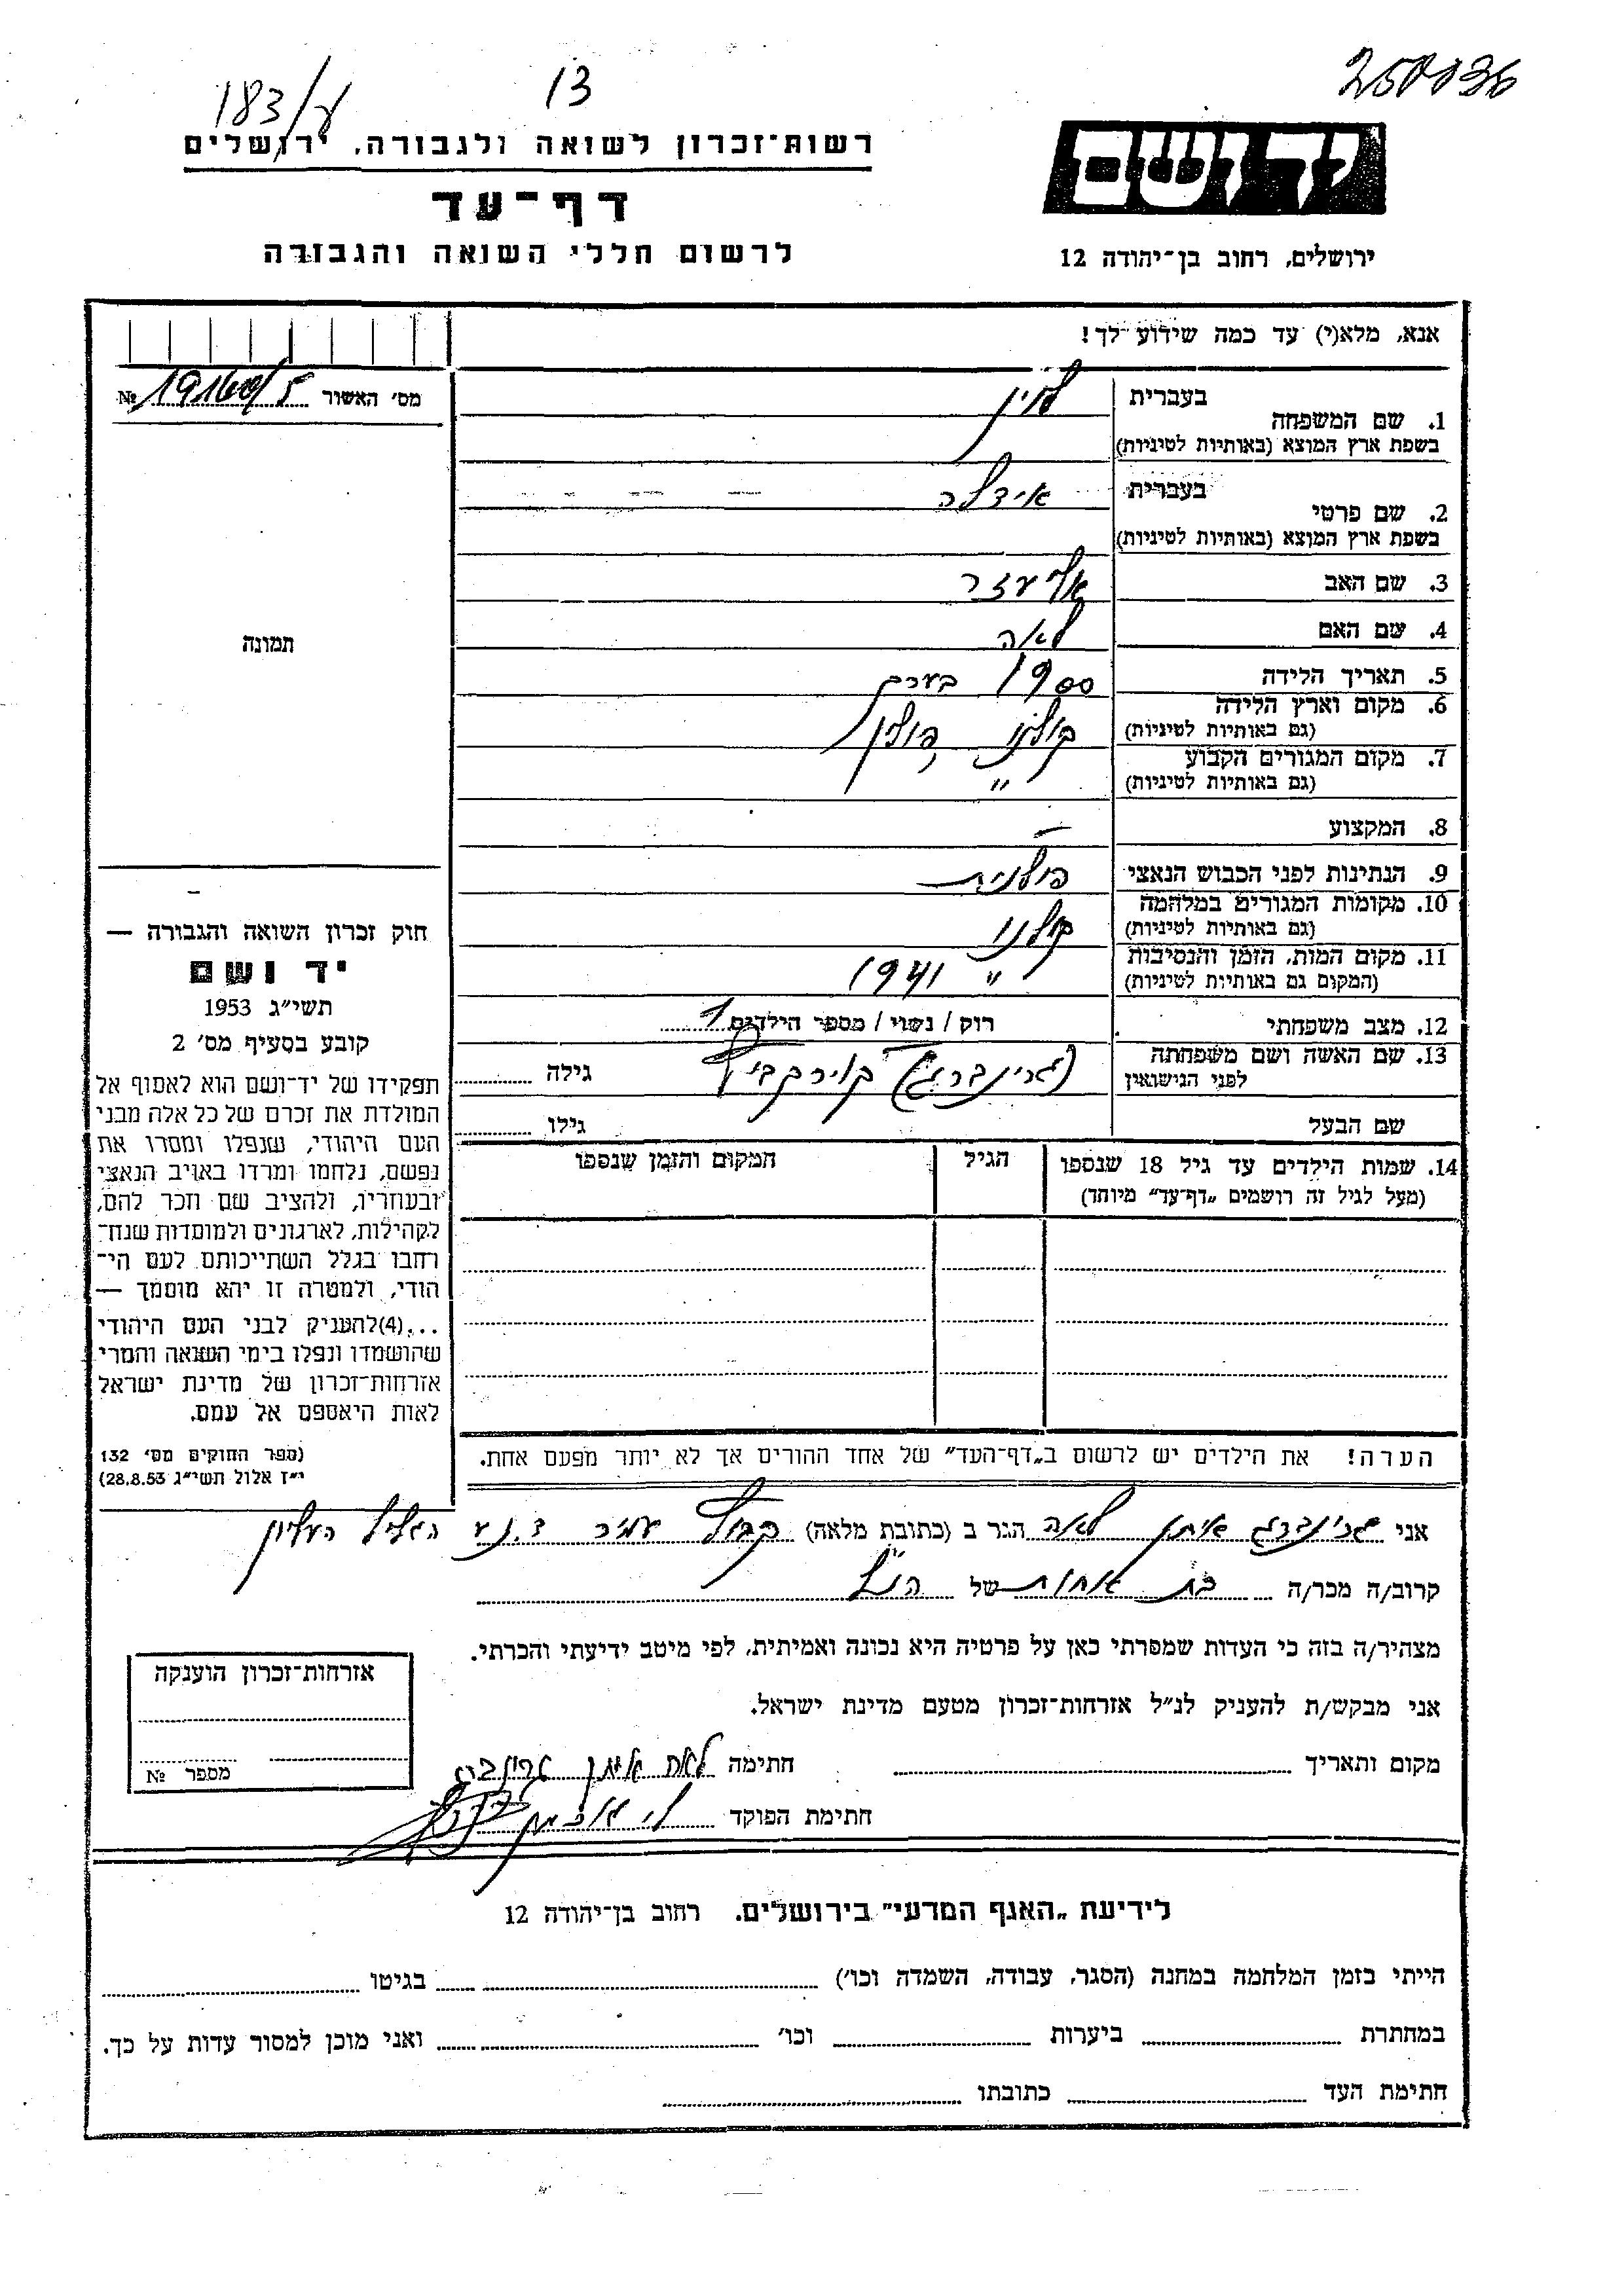 250036
13
183/ע
יד ושם
ירושלים, רחוב בן־יהודה 12
רשות־זכרון לשואה ולגבורה, ירושלים
דף־עד
לרשום חללי השואה והגבורה
אנא, מלא(י) עד כמה שידוע לך!
מס׳ האשור №
1. שם המשפחה בעברית לוין
בשפת ארץ המוצא (באותיות לטיניות)
2. שם פרטי בעברית אידלה
בשפת ארץ המוצא (באותיות לטיניות)
3. שם האב אליעזר
4. שם האם לאה
5. תאריך הלידה 1900 בערך
6. מקום וארץ הלידה קולנו, פולין
(גם באותיות לטיניות)
7. מקום המגורים הקבוע "
(גם באותיות לטיניות)
8. המקצוע —
9. הנתינות לפני הכבוש הנאצי פולנית
10. מקומות המגורים במלחמה קולנו
(גם באותיות לטיניות)
11. מקום המות, הזמן והנסיבות " 1941
(המקום גם באותיות לטיניות)
12. מצב משפחתי רוק / נשוי / מספר הילדים 1
13. שם האשה ושם משפחתה (גרינברג) גילה
לפני הנישואין
שם הבעל גילו
14. שמות הילדים עד גיל 18 שנספו הגיל המקום והזמן שנספו
(מעל לגיל זה רושמים „דף־עד” מיוחד)
הערה! את הילדים יש לרשום ב„דף־העד” של אחד ההורים אך לא יותר מפעם אחת.
תמונה
חוק זכרון השואה והגבורה —
יד ושם
תשי״ג 1953
קובע בסעיף מס׳ 2
תפקידו של יד־ושם הוא לאסוף אל
המולדת את זכרם של כל אלה מבני
העם היהודי, שנפלו ומסרו את
נפשם, נלחמו ומרדו באויב הנאצי
ובעוזריו, ולהציב שם וזכר להם,
לקהילות, לארגונים ולמוסדות שנח־
רחבו בגלל השתייכותם לעם הי־
הודי, ולמטרה זו יהא מוסמך —
...(4)להעניק לבני העם היהודי
שהושמדו ונפלו בימי השואה והמרי
אזרחות־זכרון של מדינת ישראל
לאות היאספם אל עמם.
(ספר החוקים מס׳ 132
י״ז אלול תשי״ג 28.8.53)
אני גרינברג איתן לאה הגר ב (כתובת מלאה) קבוץ עמיר ד.נע הגליל העליון
קרוב/ה מכר/ה בת אחות של הנ״ל
מצהיר/ה בזה כי העדות שמסרתי כאן על פרטיה היא נכונה ואמיתית, לפי מיטב ידיעתי והכרתי.
אני מבקש/ת להעניק לנ״ל אזרחות־זכרון מטעם מדינת ישראל.
מקום ותאריך חתימה לאה איתן גרינברג
חתימת הפוקד
אזרחות־זכרון הוענקה
מספר №
לידיעת „האגף המדעי” בירושלים. רחוב בן־יהודה 12
הייתי בזמן המלחמה במחנה (הסגר, עבודה, השמדה וכו׳) בגיטו
במחתרת ביערות וכו׳ ואני מוכן למסור עדות על כך.
חתימת העד כתובתו